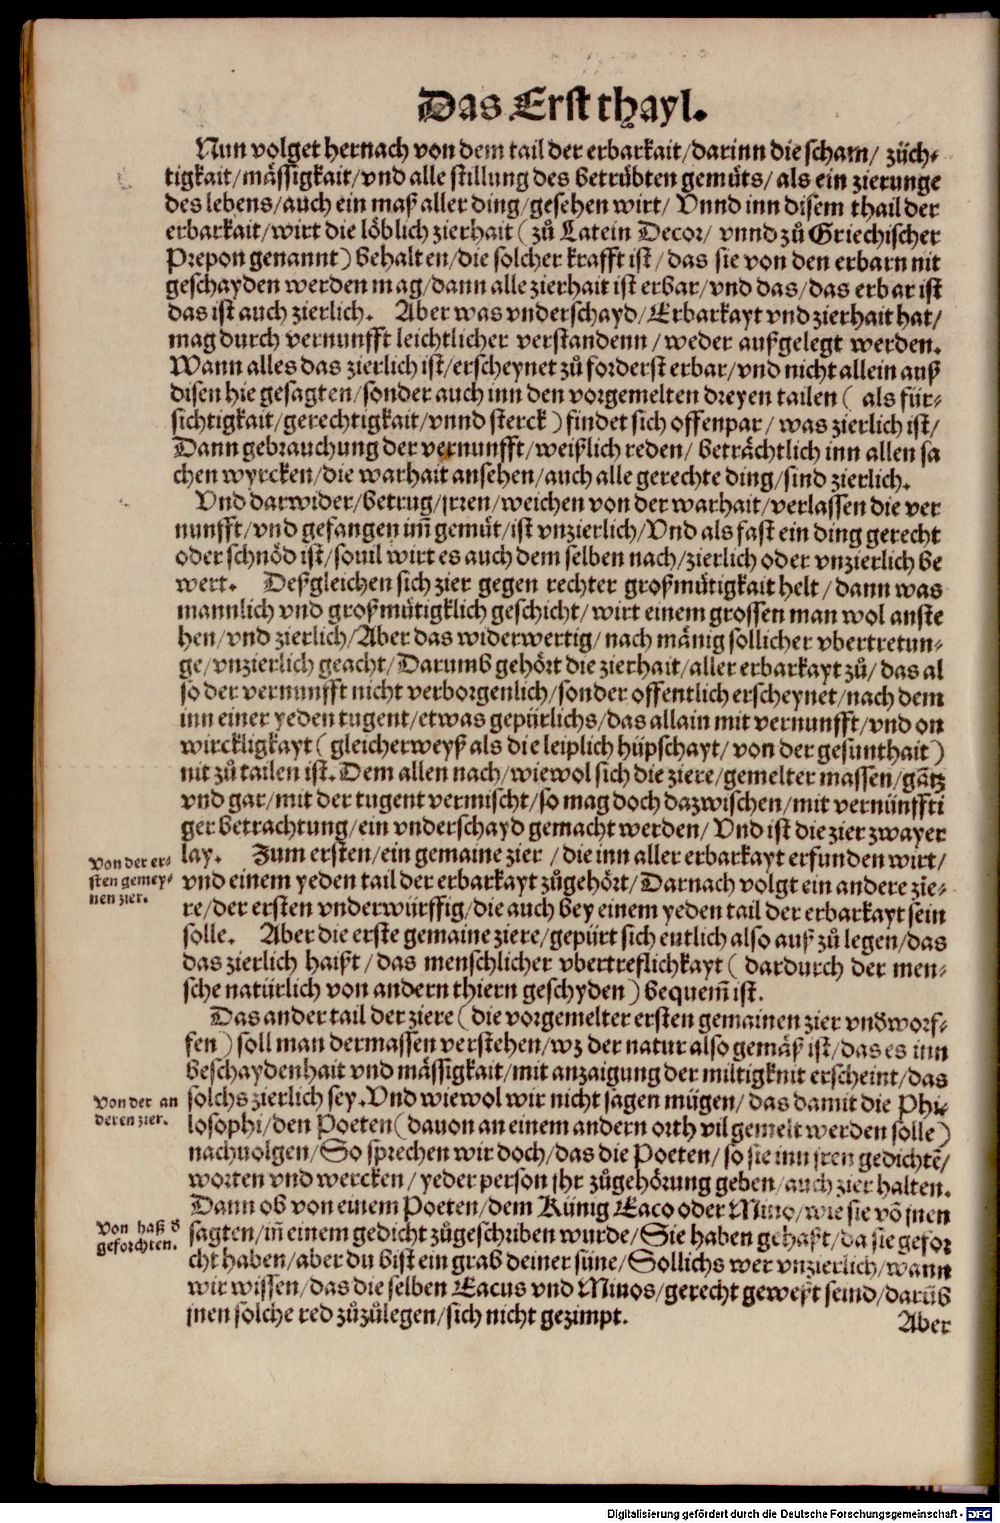 Das Erst thayl.
Nun volget hernach von dem tail der erbarkait/darinn die scham/ züch⸗
tigkait/mässigkait/vnd alle stillung des betrübten gemüts/ als ein zierunge
des lebens/auch ein maß aller ding/gesehen wirt/ Vnnd inn disem thail der
erbarkait/wirt die löblich zierhait ( zů Latein Decor/ vnnd zů Griechischer
Prepon genannt) behalten/die solcher krafft ist/das sie von den erbarn nit
geschayden werden mag/dann alle zierhait ist erbar/vnd das/das erbar ist
das ist auch zierlich. Aber was vnderschayd/Erbarkayt vnd zierhait hat/
mag durch vernunfft leichtlicher verstandenn/weder außgelegt werden.
Wann alles das zierlich ist/erscheynet zů forderst erbar/vnd nicht allein auß
disen hie gesagten/sonder auch inn den vorgemelten dreyen tailen ( als für⸗
sichtigkait/gerechtigkait/vnnd sterck ) findet sich offenpar/ was zierlich ist/
Dann gebrauchung der vernunfft/weißlich reden/ beträchtlich inn allen sa
chen wyrcken/die warhait ansehen/auch alle gerechte ding/sind zierlich.
Vnd darwider/betrug/jrren/weichen von der warhait/verlassen die ver
nunfft/vnd gefangen im̄ gemüt/ist vnzierlich/Vnd als fast ein ding gerecht
oder schnöd ist/souil wirt es auch dem selben nach/zierlich oder vnzierlich be
wert. Deßgleichen sich zier gegen rechter großmütigkait helt/dann was
mannlich vnd großmütigklich geschicht/wirt einem grossen man wol anste
hen/vnd zierlich/Aber das widerwertig/nach mänig sollicher vbertretun⸗
ge/vnzierlich geacht/Darumb gehört die zierhait/aller erbarkayt zů/das al
so der vernunfft nicht verborgenlich/sonder offentlich erscheynet/nach dem
inn einer yeden tugent/etwas gepürlichs/das allain mit vernunfft/vnd on
wirckligkayt ( gleicherweyß als die leiplich hüpschayt/ von der gesunthait )
nit zů tailen ist. Dem allen nach/wiewol sich die ziere/gemelter massen/gātz
vnd gar/mit der tugent vermischt/so mag doch dazwischen/mit vernünffti
ger betrachtung/ein vnderschayd gemacht werden/ Vnd ist die zier zwayer
lay. Zum ersten/ein gemaine zier /die inn aller erbarkayt erfunden wirt/
Von der er⸗
sten gemey⸗
nen zier.
vnd einem yeden tail der erbarkayt zůgehört/Darnach volgt ein andere zie⸗
re/der ersten vnderwürffig/die auch bey einem yeden tail der erbarkayt sein
solle. Aber die erste gemaine ziere/gepürt sich entlich also auß zů legen/das
das zierlich haißt/das menschlicher vbertreflichkayt ( dardurch der men⸗
sche natürlich von andern thiern geschyden ) bequem̄ ist.
Das ander tail der ziere ( die vorgemelter ersten gemainen zier vnd̄worf⸗
fen ) soll man dermassen verstehen/wz der natur also gemäß ist/das es inn
beschaydenhait vnd mässigkait/mit anzaigung der miltigknit erscheint/das
Von der an
deren zier.
solchs zierlich sey. Vnd wiewol wir nicht sagen mügen/ das damit die Phi⸗
losophi/den Poeten( dauon an einem andern orth vil gemelt werden solle )
nachuolgen/So sprechen wir doch/das die Poeten/ so sie inn jren gedichtē/
worten vnd wercken/ yeder person jhr zůgehörung geben/auch zier halten.
Dann ob von einem Poeten/dem Künig Eaco oder Mino/wie sie vō jnen
Von haß d̄
geforchten.
sagten/in̄ einem gedicht zůgeschriben wurde/Sie haben gehaßt/da sie gefor
cht haben/aber du bist ein grab deiner süne/Sollichs wer vnzierlich/wann
wir wissen/das die selben Eacus vnd Minos/gerecht geweßt seind/darūb
jnen solche red zůzůlegen/sich nicht gezimpt.
Aber
Digitalisierung gefördert durch die Deutsche Forschungsgemeinschaft - DFG